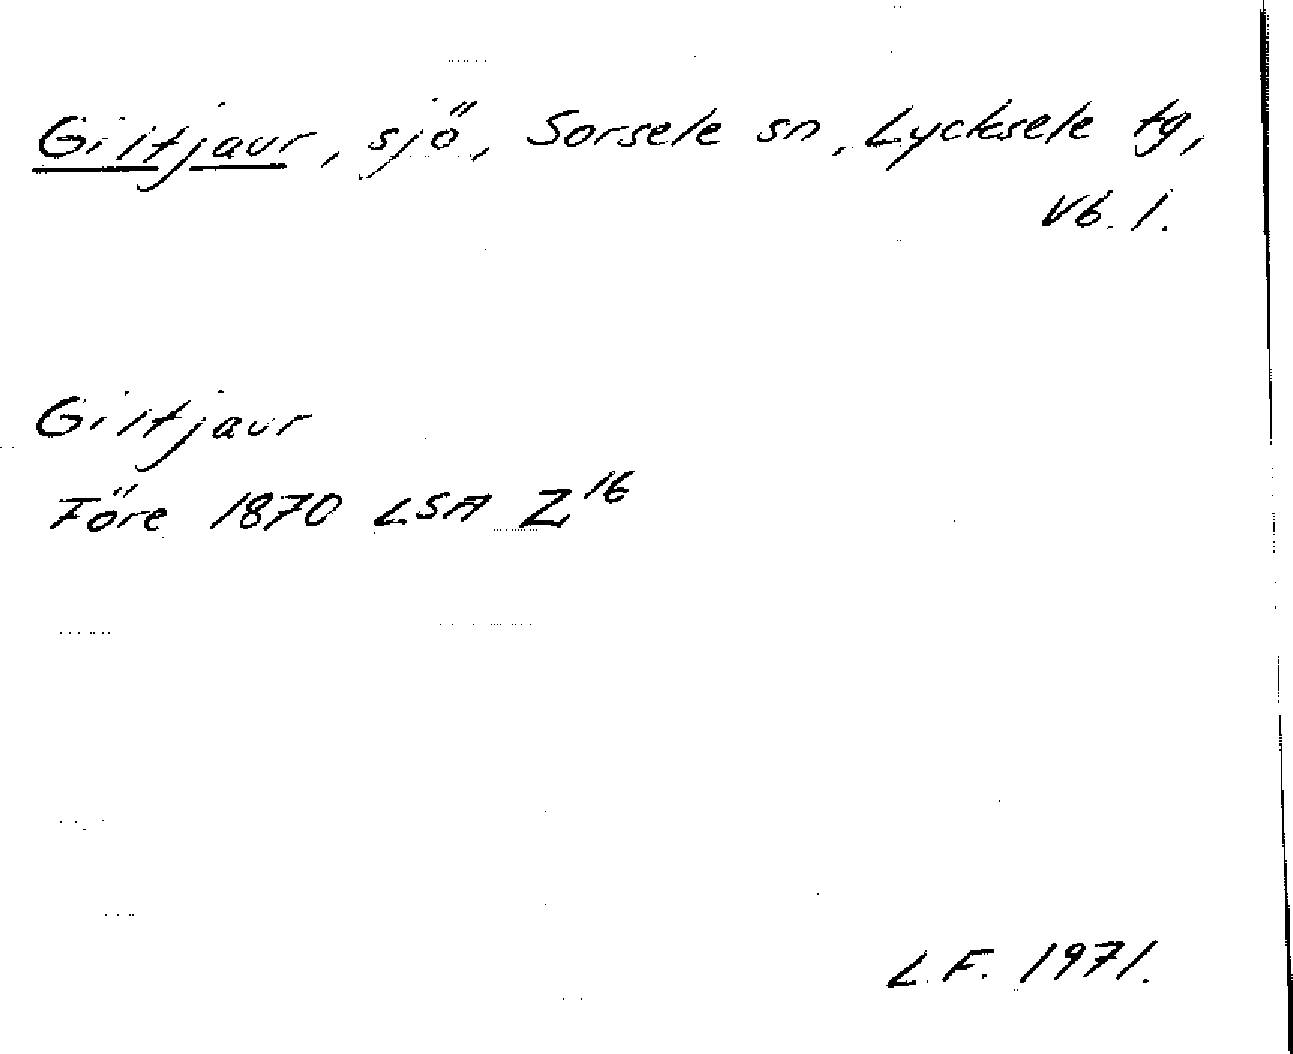 Giltjaur, sjö, Sorsele sn, Lycksele tg,
Vb. l.
Giltjaur
Före 1870 LSA Z16
L.F. 1971.